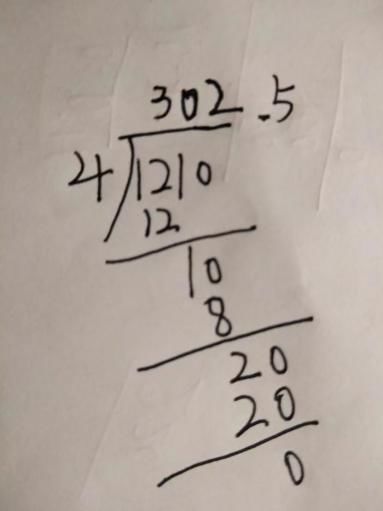 302.5
4 1210
12
10
8
20
20
0